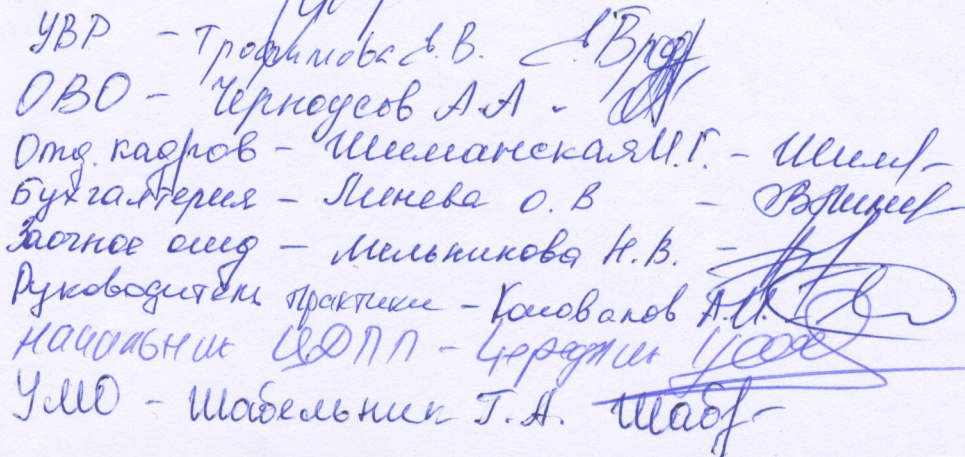 УВР - Трофимова Е.В.
ОВО - Черноусов А.А -
Отд. кадров - Шиманская М.Г. -
Бухгалтерия - Линева О.В -
Заочное отд - Мельникова Н.В. -
Руководитель практики - Коновалов А.И.
Начальник ЦДПП - Чередник
УМО - Шабельник Г.А.